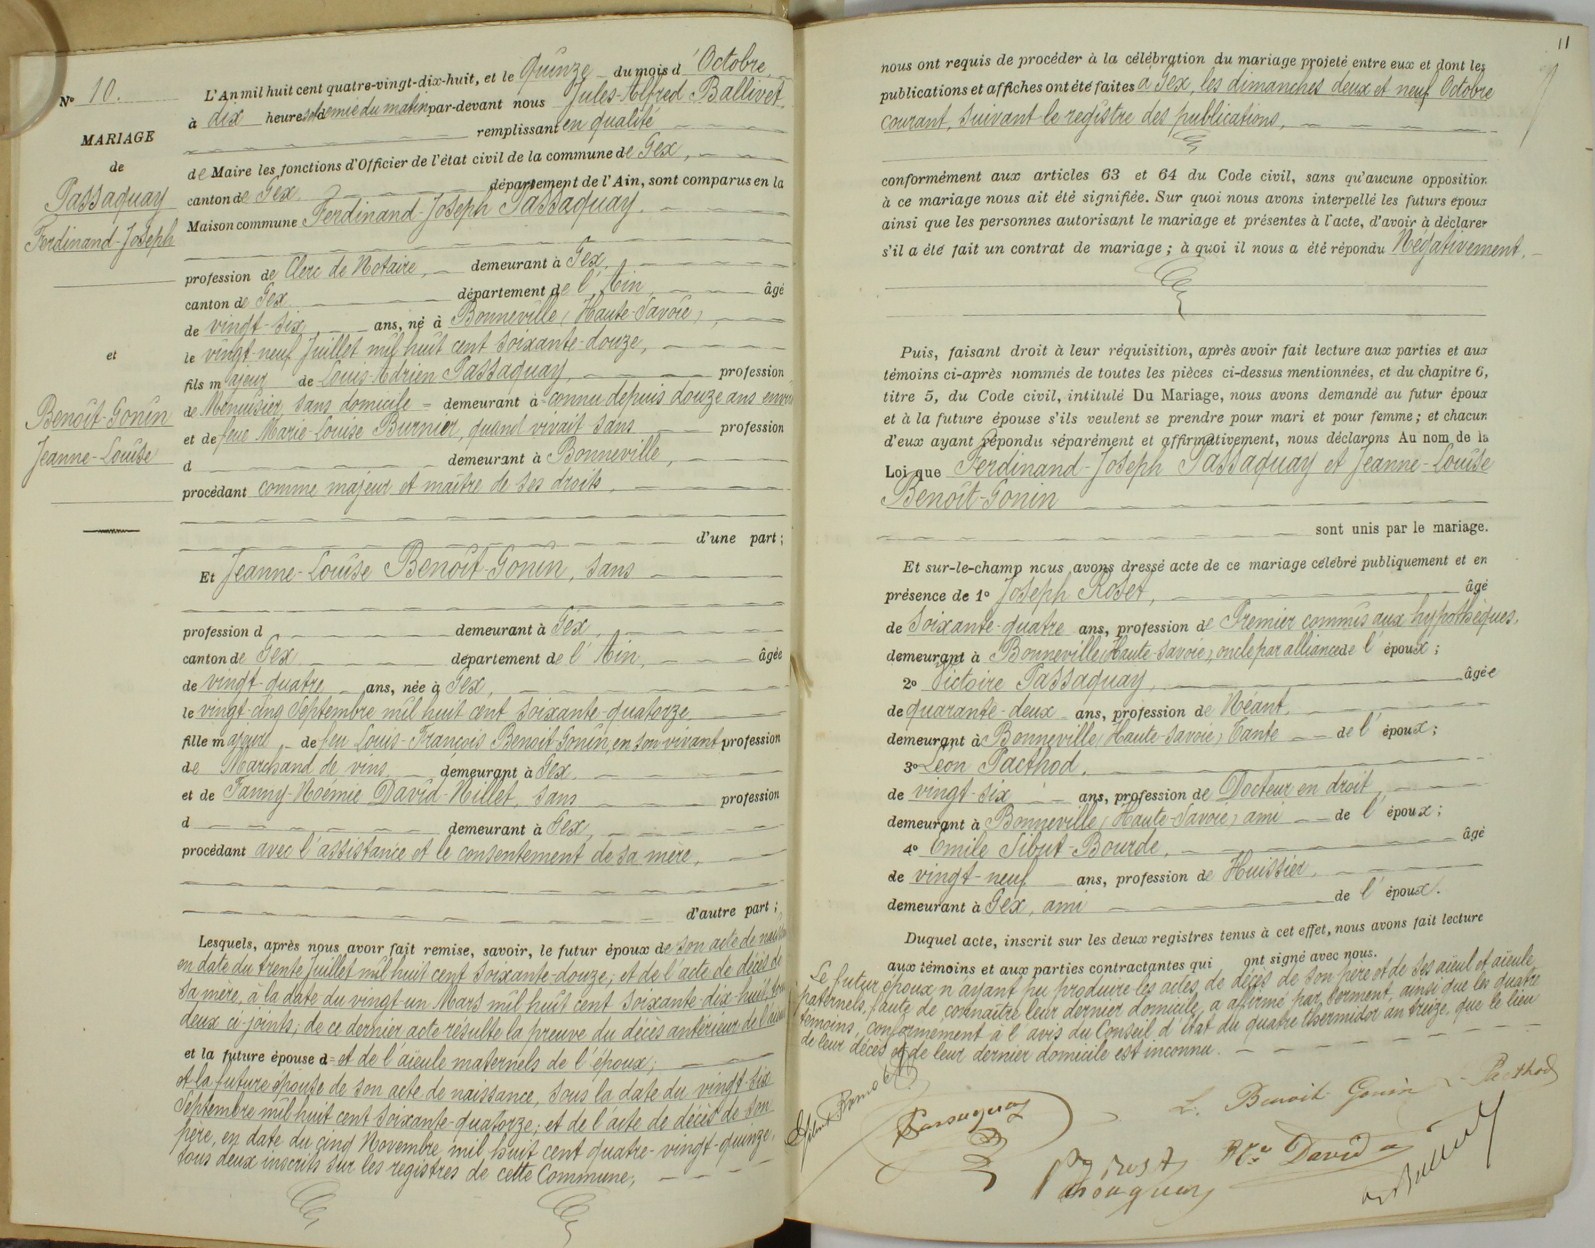 N° 10.
MARIAGE
de
Passaquay
Ferdinand-Joseph
et
Benoît-Gonin
Jeanne-Louise
L'An mil huit cent quatre-vingt-dix-huit, et le Quinze du mois d'Octobre,
à dix heures et demie du matin par-devant nous Jules-Alfred Ballivet,
remplissant en qualité
de Maire les fonctions d'Officier de l'état civil de la commune de Gex,
canton de Gex département de l'Ain, sont comparus en la
Maison commune Ferdinand-Joseph Passaquay,
profession de Clerc de Notaire, demeurant à Gex,
canton de Gex département de l'Ain, âgé
de vingt-six ans, né à Bonneville (Haute-Savoie),
le vingt-neuf Juillet mil huit cent soixante-douze,
fils majeur de Louis-Adrien Passaquay, profession
de Menuisier, sans domicile = demeurant à = connu depuis douze ans
et de feue Marie-Louise Burnier, quand vivait sans profession
d demeurant à Bonneville,
procédant comme majeur et maître de ses droits,
d'une part;
Et Jeanne-Louise Benoît-Gonin, sans
profession d demeurant à Gex,
canton de Gex département de l'Ain, âgée
de vingt-quatre ans, née à Gex,
le vingt-cinq Septembre mil huit cent soixante-quatorze,
fille majeure de feu Louis-François Benoît-Gonin, en son vivant profession
de Marchand de vins demeurant à Gex,
et de Fanny-Noémie David-Nillet, sans profession
d demeurant à Gex,
procédant avec l'assistance et le consentement de sa mère,
d'autre part;
Lesquels, après nous avoir fait remise, savoir, le futur époux de son acte de naissance
en date du trente Juillet mil huit cent soixante-douze; et de l'acte de décès de
sa mère, à la date du vingt-un Mars mil huit cent soixante-dix-huit, tous
deux ci-joints; de ce dernier acte résulte la preuve du décès antérieur de l'aïeul
et la future épouse d= et de l'aïeule maternels de l'époux;
et la future épouse de son acte de naissance, sous la date du vingt-six
Septembre mil huit cent soixante-quatorze; et de l'acte de décès de son
père, en date du cinq Novembre mil huit cent quatre-vingt-quinze,
tous deux inscrits sur les registres de cette Commune,
11
nous ont requis de procéder à la célébration du mariage projeté entre eux et dont les
publications et affiches ont été faites à Gex, les dimanches deux et neuf Octobre
courant, suivant le registre des publications,
conformément aux articles 63 et 64 du Code civil, sans qu'aucune opposition
à ce mariage nous ait été signifiée. Sur quoi nous avons interpellé les futurs époux
ainsi que les personnes autorisant le mariage et présentes à l'acte, d'avoir à déclarer
s'il a été fait un contrat de mariage; à quoi il nous a été répondu Négativement,
Puis, faisant droit à leur réquisition, après avoir fait lecture aux parties et aux
témoins ci-après nommés de toutes les pièces ci-dessus mentionnées, et du chapitre 6,
titre 5, du Code civil, intitulé Du Mariage, nous avons demandé au futur époux
et à la future épouse s'ils veulent se prendre pour mari et pour femme; et chacun
d'eux ayant répondu séparément et affirmativement, nous déclarons Au nom de la
Loi que Ferdinand-Joseph Passaquay et Jeanne-Louise
Benoît-Gonin
sont unis par le mariage.
Et sur-le-champ nous avons dressé acte de ce mariage célébré publiquement et en
présence de 1° Joseph Roset, âgé
de soixante-quatre ans, profession de Premier commis aux hypothèques,
demeurant à Bonneville (Haute-Savoie), oncle par alliance de l'époux;
2° Victoire Passaquay, âgée
de quarante-deux ans, profession de Néant,
demeurant à Bonneville (Haute-Savoie) Tante de l'époux;
3° Léon Pacthod,
de vingt-six ans, profession de Docteur en droit,
demeurant à Bonneville (Haute-Savoie) ami de l'époux;
4° Emile Sibut-Bourde, âgé
de vingt-neuf ans, profession de Huissier,
demeurant à Gex, ami de l'époux.
Duquel acte, inscrit sur les deux registres tenus à cet effet, nous avons fait lecture
aux témoins et aux parties contractantes qui ont signé avec nous.
Le futur époux n'ayant pu produire les actes de décès de son père et de ses aïeul et aïeule
paternels, faute de connaître leur dernier domicile, a affirmé par serment, ainsi que les quatre
témoins, conformément à l'avis du Conseil d'état du quatre thermidor an treize, que le lieu
de leur décès et de leur dernier domicile est inconnu.
Passaquay
L. Benoit Gonin
L. Pacthod
Vve David